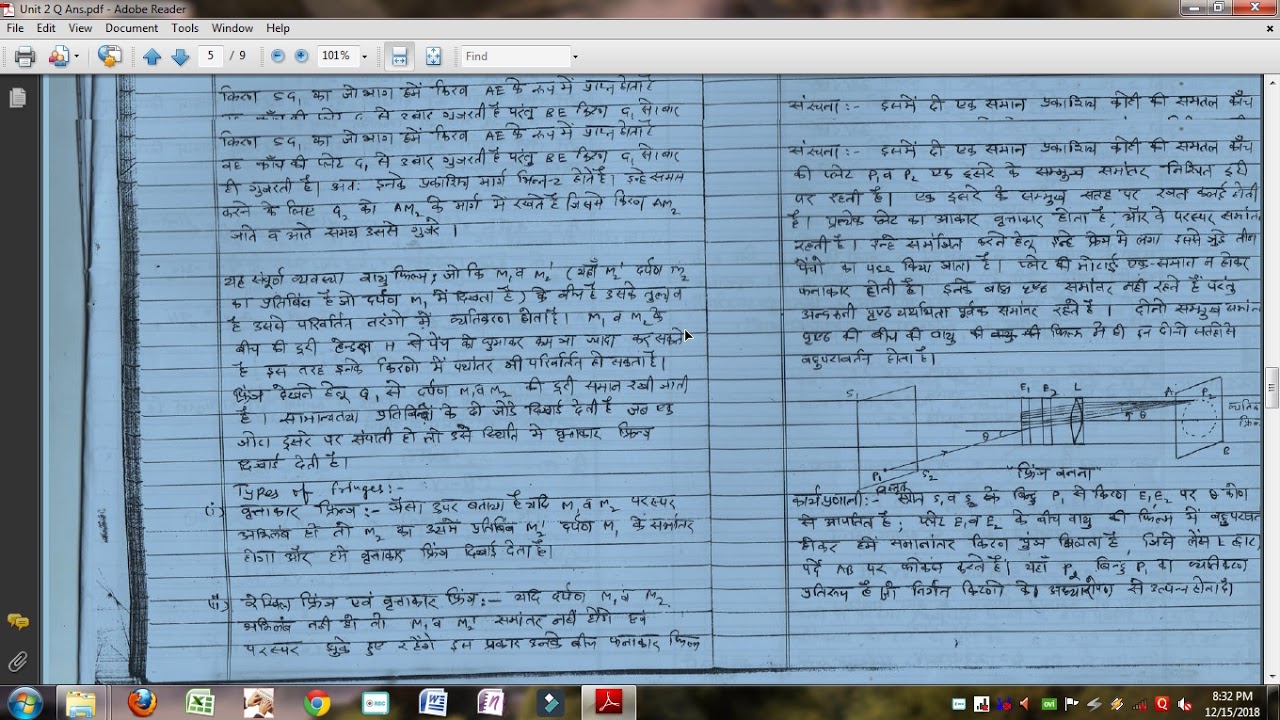 Unit 2 Q Ans.pdf - Adobe Reader
File Edit View Document Tools Window Help
5 / 9 101% Find
किरण SG₁ का जो भाग हमें किरण AE के रूप में प्राप्त होता है
किरण SG₁ का जो भाग हमें किरण AE के रूप में प्राप्त होता है
वह काँच की प्लेट G₁ से 3 बार गुजरती है परंतु BE किरण G₁ से 1 बार
ही गुजरती है। अतः इनके प्रकाशिक मार्ग भिन्न-2 होते हैं। इन्हे समान
करने के लिए G₂ को AM₂ के मार्ग में रखते है जिससे किरण AM₂
जाते व आते समय उससे गुजरे ।
यह संपूर्ण व्यवस्था वायु फिल्म, जो कि M₁ व M₂' (यहाँ M₂' दर्पण M₂
का प्रतिबिंब है जो दर्पण M₁ में दिखता है) के बीच है उसके तुल्य व
है उससे परिवर्तित तरंगो में व्यतिकरण होता है। M₁ व M₂ के
बीच की दूरी हेन्डल H से पेंच को घुमाकर कम या ज्यादा कर सकते
है इस तरह इनके किरणो में पथांतर भी परिवर्तित हो सकता है।
फ्रिंज देखने हेतु G₁ से दर्पण M₁ व M₂ की दूरी समान रखी जाती
है । सामान्यतया प्रतिबिंबो के दो जोड़े दिखाई देती है जब एक
जोड़ा दूसरे पर संपाती हो तो इस स्थिति में वृत्ताकार फ्रिन्ज
दिखाई देती है।
Types of fringes:-
(i) वृत्ताकार फ्रिन्ज :- जैसा उपर बताया है यदि M₁ व M₂ परस्पर
अभिलंब हो तो M₂ का उसमें प्रतिबिंब M₂' दर्पण M₁ के समांतर
होगा और हमे वृत्ताकार फ्रिंज दिखाई देता है।
(ii) रेखिल फ्रिंज एवं वृत्ताकार फ्रिंज :- यदि दर्पण M₁ व M₂
अभिलंब नही हो तो M₁ व M₂' समांतर नहीं होंगे एवं
परस्पर झुके हुए रहेंगे इस प्रकार उनके बीच फनाकार फिल्म
संरचना :- इसमें दो एक समान प्रकाशिय कोटी की समतल काँच
संरचना :- इसमें दो एक समान प्रकाशिय कोटी की समतल काँच
की प्लेट P₁ व P₂ एक दूसरे के सम्मुख समांतर निश्चित दूरी
पर रहती है। एक दूसरे के सम्मुख सतह पर रजत कलई होती
है । प्रत्येक प्लेट का आकार वृत्ताकार होता है, और वे परस्पर समांत
रहती है । इन्हे समांजित करने हेतू इन्हे फ्रेम मे लगा उससे जुड़े तीन
पेंचो का use किया जाता है । प्लेट की मोटाई एक-समान न होकर
फनाकार होती है। इनके बाह्य पृष्ठ समांतर नहीं रहते हैं परंतु
अन्दरूनी पृष्ठ यथार्थता पूर्वक समांतर रहते है । दोनो सम्मुख समां
पृष्ठ की बीच की वायु की फिल्म में ही इन दोनो सतहो से
बहुपरावर्तन होता है।
S₁ E₁ E₂ L A P₂
θ θ
P₁ S₂ B
बिन्दुक "फ्रिंज बनना"
कार्यप्रणाली :- स्रोत S₁ व S₂ के बिन्दु P₁ से किरण E₁E₂ पर θ कोण
से आपतित है ; प्लेट E₁ व E₂ के बीच वायु की फिल्म में बहुपराव
होकर हमें समानांतर किरण पुंज मिलता है, जिसे लेंस L द्वारा
पर्दे AB पर फोकस करते है। यहाँ P₂ बिन्दु P₁ का व्यतिकरण
प्रतिरूप है जो निर्गत किरणो के अध्यारोपण से उत्पन्न होता है।
8:32 PM
12/15/2018